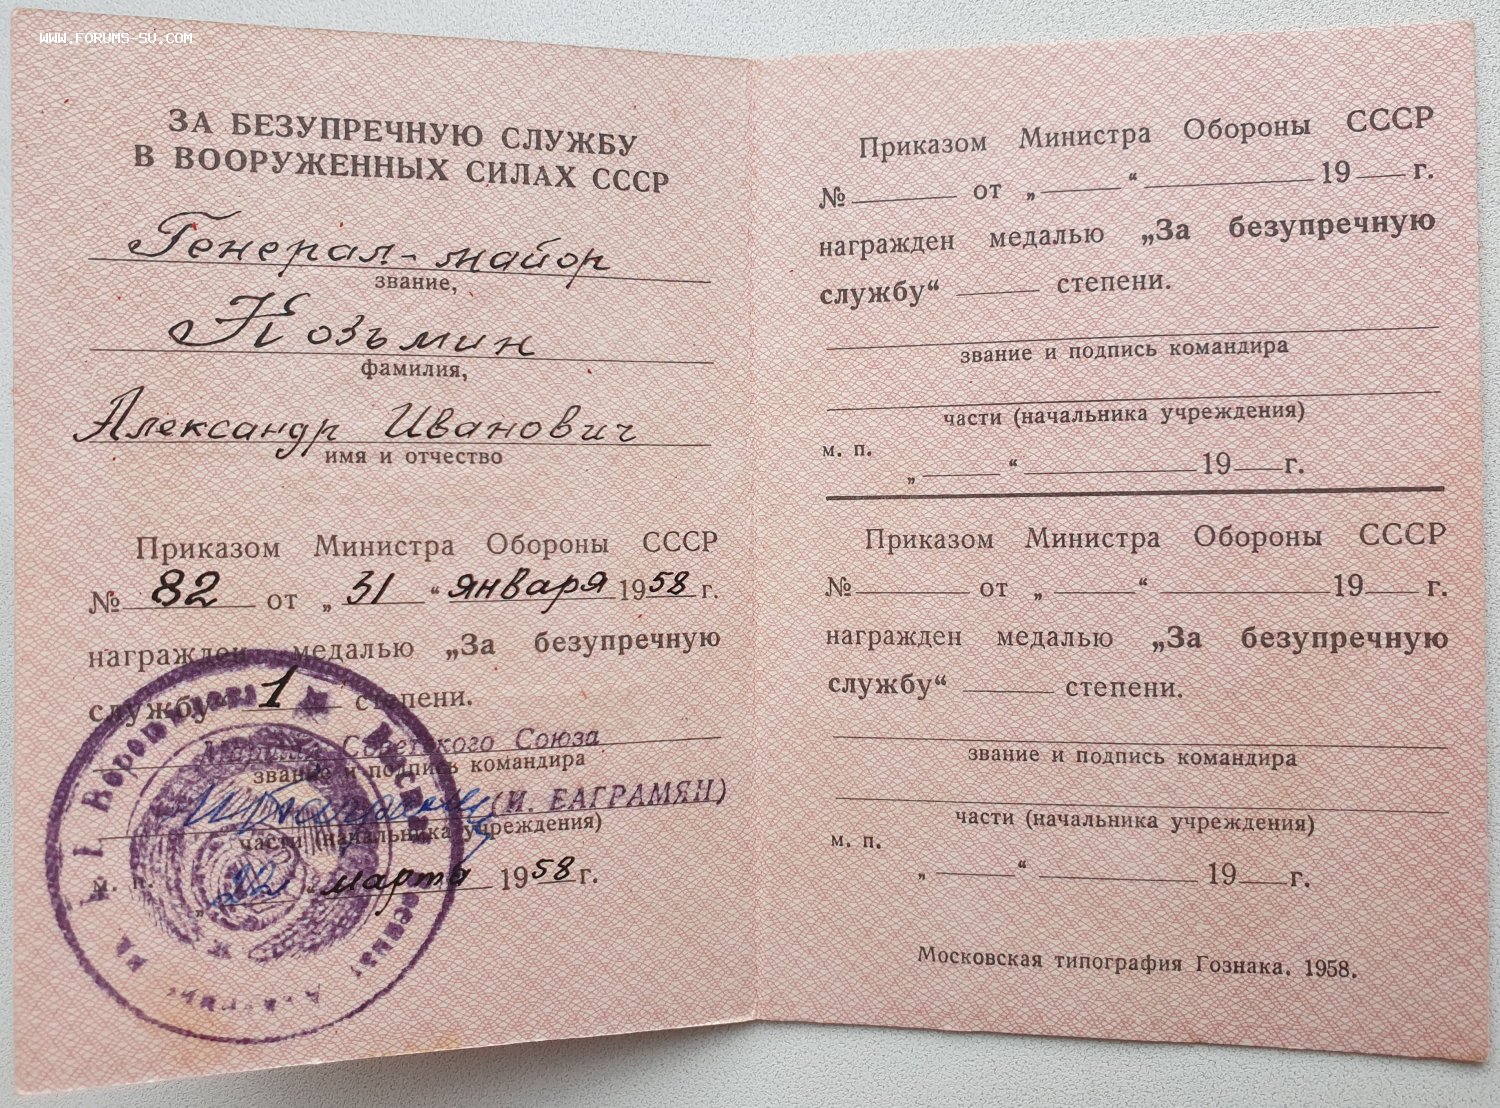 WWW.FORUMS-SU.COM
ЗА БЕЗУПРЕЧНУЮ СЛУЖБУ
В ВООРУЖЕННЫХ СИЛАХ СССР
Генерал-майор
звание,
Козьмин
фамилия,
Александр Иванович
имя и отчество
Приказом Министра Обороны СССР
№ 82 от „ 31 “ января 1958 г.
награжден медалью „За безупречную
службу“ 1 степени.
Маршал Советского Союза
звание и подпись командира
(И. БАГРАМЯН)
части (начальника учреждения)
м. п.
„ 22 “ марта 1958 г.
Приказом Министра Обороны СССР
№ от „ “ 19 г.
награжден медалью „За безупречную
службу“ степени.
звание и подпись командира
части (начальника учреждения)
м. п.
„ “ 19 г.
Приказом Министра Обороны СССР
№ от „ “ 19 г.
награжден медалью „За безупречную
службу“ степени.
звание и подпись командира
части (начальника учреждения)
м. п.
„ “ 19 г.
Московская типография Гознака. 1958.